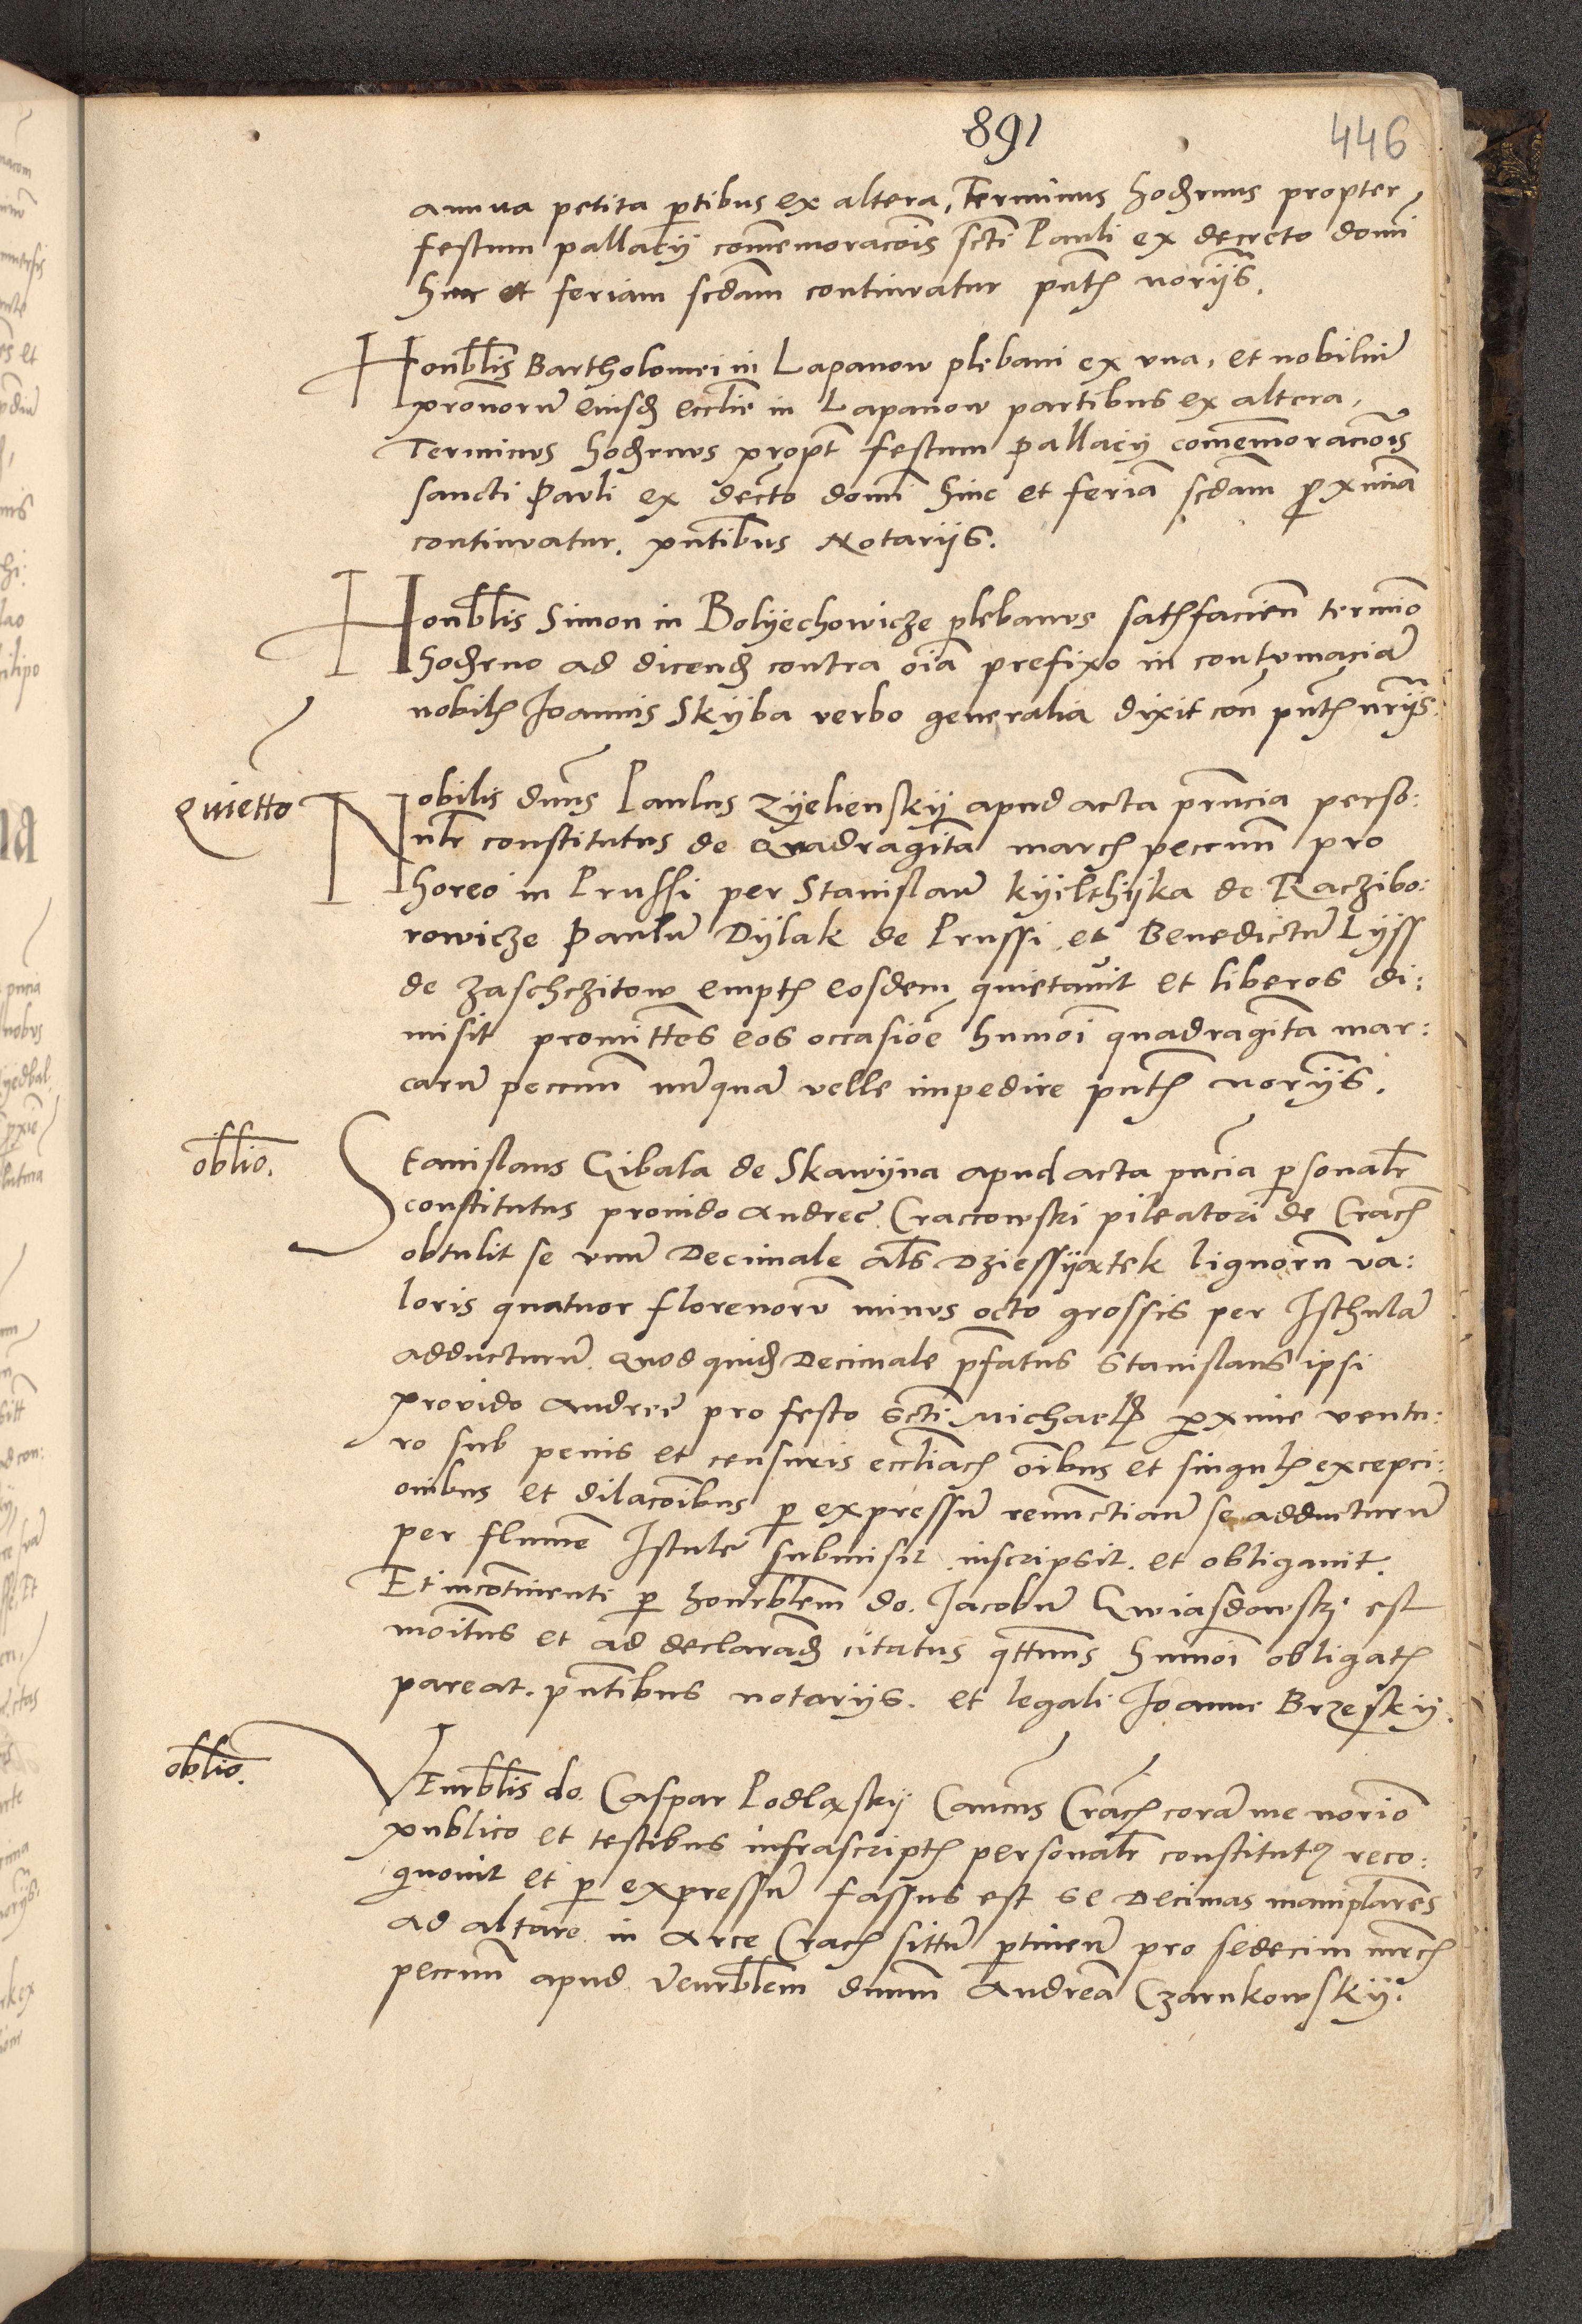 891
446
annua petita ꝑtibus ex altera, Terminus hodˀrnus propter
festum pallacij com̃emorac̃ois sc̃ti Pauli ex decreto domĩ
hinc et feriam sc̃dam continuatur pñtꝭ norijs̃.
Honbl̃is Bartholomei in Lapanow plebani ex vna, et nobiliũ
pronorũ eiusdˀ eccl̃ie in Lapanow partibus ex altera,
Terminus hodˀrnus propt̃ festum pallacij com̃emoracõis
sancti Pauli ex dec̃to domĩ hinc et feriã sc̃dam ꝓximã
continuatur. pñtibus Notarijs.
Honbl̃is Simon in Bolyechowicze plebanus satꝭfacieñ termĩo
hodˀrno ad dicendˀ contra oĩa prefixo in contumaciã
nobilꝭ Joannis Skyba verbo generalia dixit coñ pñtꝭ nrĩjs.
Quietto
Nobilis dñns Paulus Zyelienskij apud acta pñcia perso:
nlr̃ constitutus de Quadraginta marcꝭ peccuñ pro
horeo in Prussi per Stanislaũ kyelthyka de Raczibo:
rowicze Paulũ Dylak de Prussi et Benedictũ Lyss
de Zaschczitow emptꝭ eosdem quietauit et liberos di:
misit promittẽs eos occasiõe hmõi quadraginta mar:
carũ peccuñ nũquã velle impedire pñtꝭ norijs̃.
obl̃io.
Stanislaus Gibala de Skawyna apud acta pñcia ꝑsonalr̃
constitutus prouido Andreę Craccowski pileatori de Cracꝭ
obtulit se vnũ Decimale al̃s Dziessyątek lignorũ va:
loris quatuor florenorũ minus octo grossis per Isthulã
adducturũ. Quod quidˀ Decimale p̃fatus Stanislaus ipsi
prouido Andreę pro festo sc̃ti Michaelꝭ ꝓxime ventu:
ro sub penis et censuris eccl̃iacꝭ oĩbus et singulꝭ excepci:
onibus et dilacõibus ꝑ expressũ renunctiaũ se adducturũ
per flumẽ Istulę submisit inscripsit et obligauit.
Et incontinenti ꝑ honrbl̃em do. Jacobũ Gwiasdowski est
moĩtus et ad declarandˀ citatus q̃ttnus hmõi obligatꝭ
pareat. pñtibus notarijs. et legali Joanne Brzeskij.
obl̃io.
Venrbl̃is do. Caspar Podlaskij Canc̃us Cracꝭ corã me noriõ
publico et testibus infrascriptꝭ personalr̃ constitutꝯ reco:
gnouit et ꝑ expressũ fassus est se Decimas manipl̃ares
ad altare in Arce Cracꝭ sittũ ꝑtineñ pro sedecim mr̃cꝭ
peccuñ apud Venrbl̃em dnum̃ Andreã Czarnkowskij.